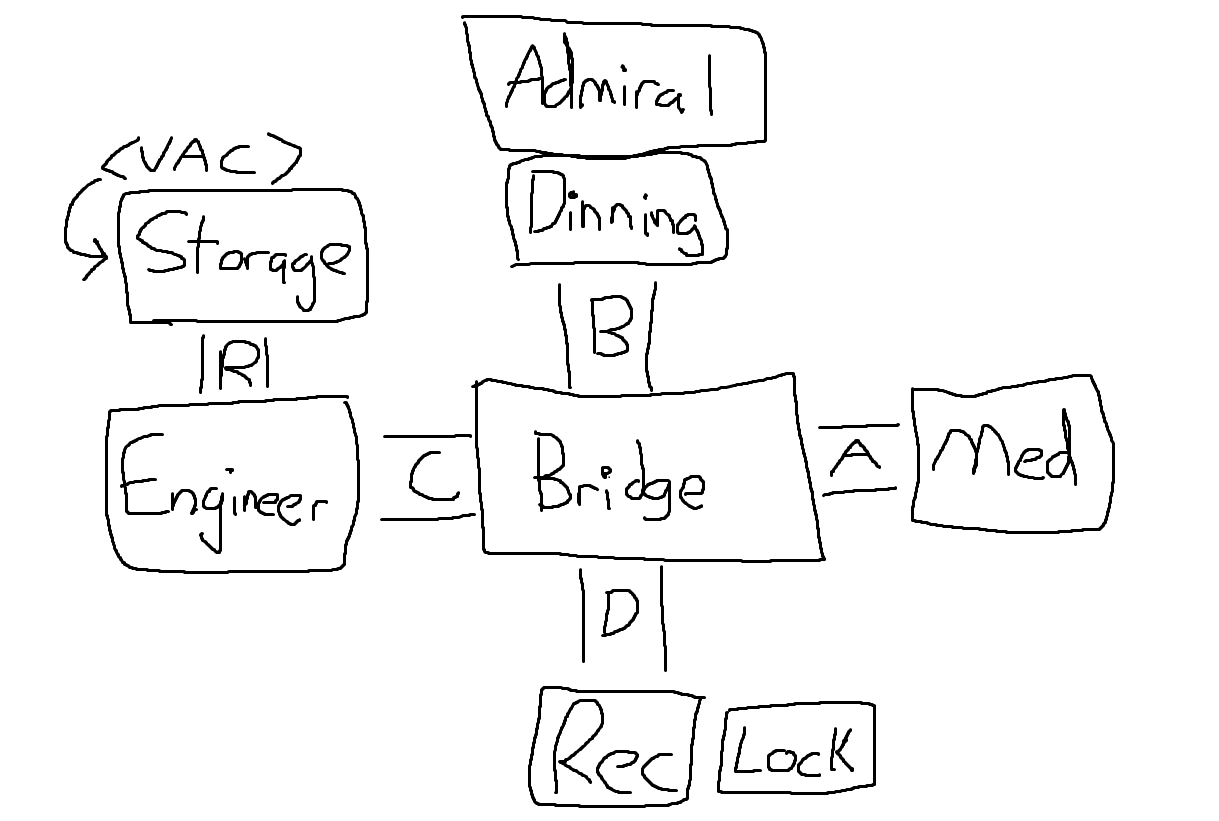 Admiral
<VAC>
Dinning
Storage
B
R
Engineer
C
Bridge
A
Med
D
Rec
Lock